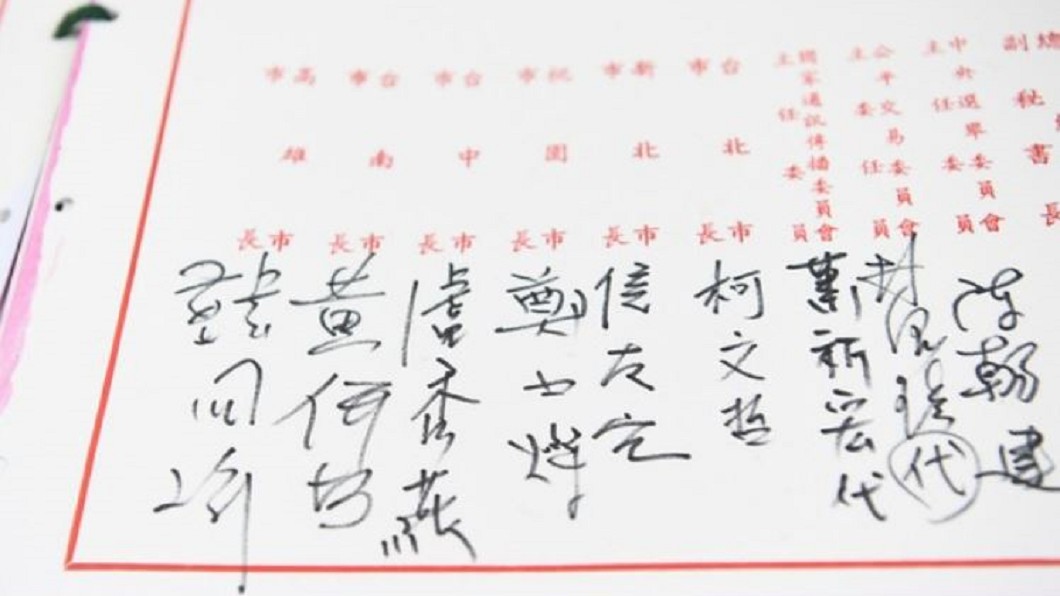 副秘書長
中央選舉委員會
主任委員
陳朝建
公平交易委員會
主任委員
代
國家通訊傳播委員會
主任委員
蕭祈宏代
台北市市長
柯文哲
新北市市長
侯友宜
桃園市市長
鄭文燦
台中市市長
盧秀燕
台南市市長
黃偉哲
高雄市市長
韓國瑜